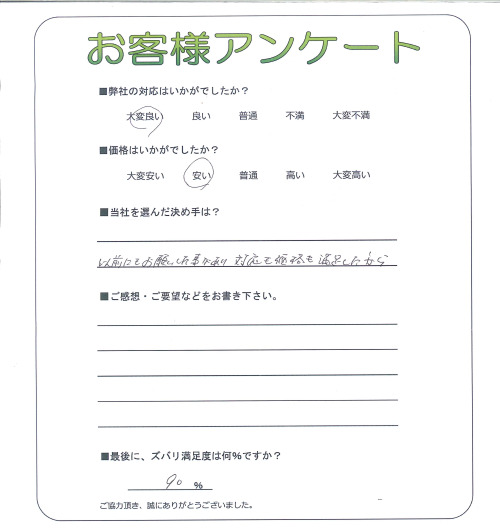 お客様アンケート
■弊社の対応はいかがでしたか？
大変良い 良い 普通 不満 大変不満
■価格はいかがでしたか？
大変安い 安い 普通 高い 大変高い
■当社を選んだ決め手は？
以前にもお願いした事があり 対応も価格も満足したから
■ご感想・ご要望などをお書き下さい。
■最後に、ズバリ満足度は何%ですか？
90 %
ご協力頂き、誠にありがとうございました。